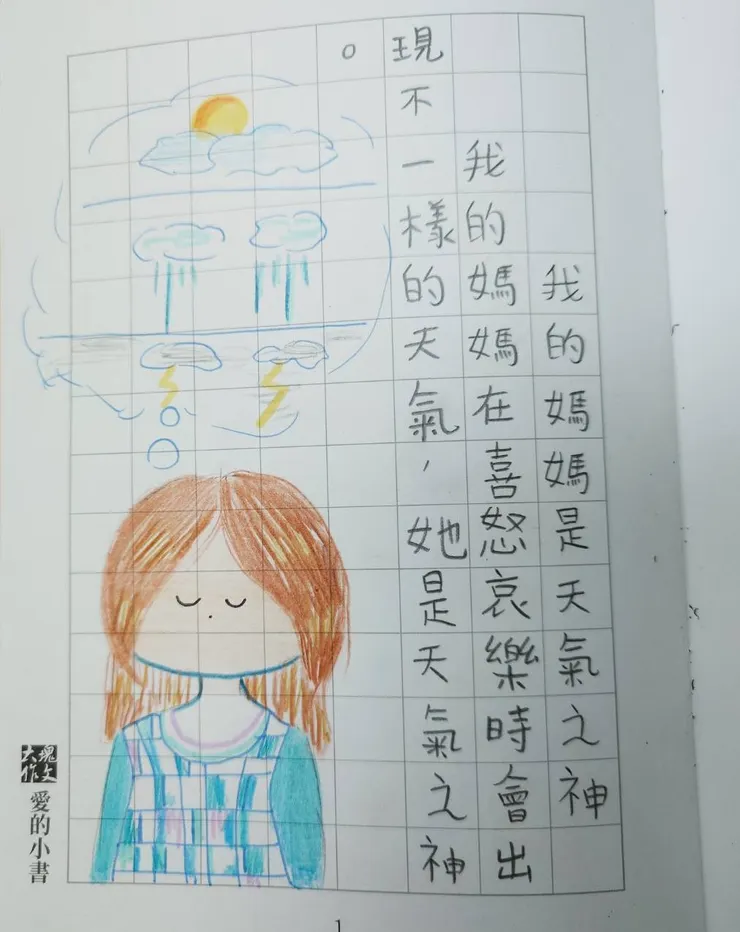 我的媽媽是天氣之神
我的媽媽在喜怒哀樂時會出
現不一樣的天氣，她是天氣之神
。
大塊
作文
愛的小書
1